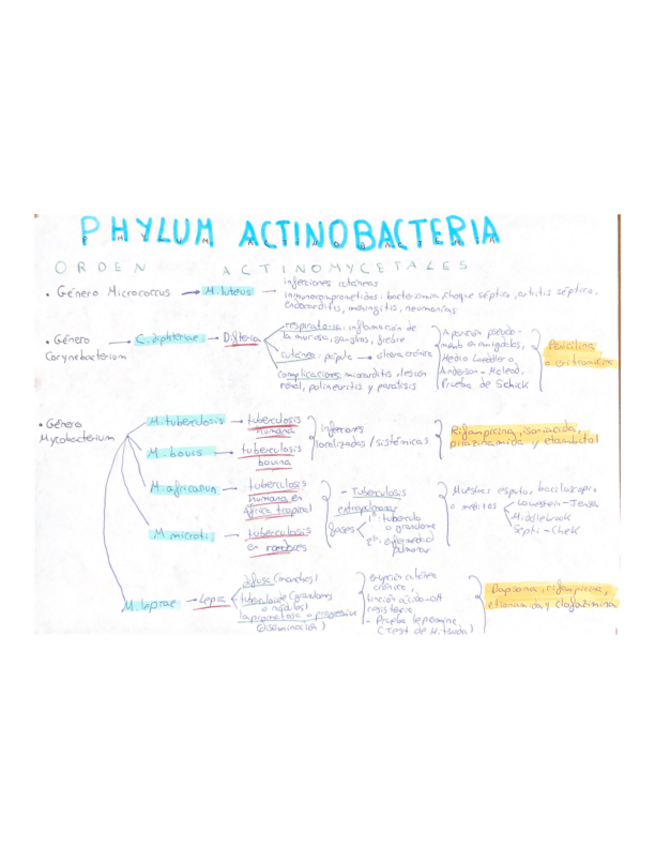 PHYLUM ACTINOBACTERIA
ORDEN ACTINOMYCETALES
• Género Micrococcus → M. luteus — infecciones cutáneas
inmunocomprometidos: bacteremia, choque séptico, artritis séptico,
endocarditis, meningitis, neumonías
• Género Corynebacterium → C. diphteriae → Difteria
respiratoria: inflamación de
la mucosa, ganglios, fiebre
cutánea: pápula → úlcera crónica
complicaciones: miocarditis, lesión
renal, polineuritis y parálisis
Aparición pseudo-
memb en amígdalas,
Medio Loeffler o
Anderson-McLeod,
Prueba de Schick
Penicilina
o eritromicina
• Género
Mycobacterium
M. tuberculosis → tuberculosis
humana
M. bovis → tuberculosis
bovina
infecciones
localizadas/sistémicas
Rifampicina, isoniacida,
pirazinamida y etambutol
M. africanun → tuberculosis
humana en
África tropical
M. microti → tuberculosis
en roedores
- Tuberculosis
extrapulmonar
fases
1º: tubérculo
o granuloma
2º: enfermedad
pulmonar
Muestras esputo, baciloscopia
o medios
Lowestein-Jensen
Middlebrook
Septi-Chek
M. leprae → Lepra
difusa (manchas)
tuberculoide (granulomas
o nódulos)
lepromatosa o progresiva
(diseminación)
erupción cutánea
crónica,
tinción ácido-alt
resistencia
- Prueba lepromina
(Test de Mitsuda)
Dapsona, rifampicina,
etionamida y clofazimina